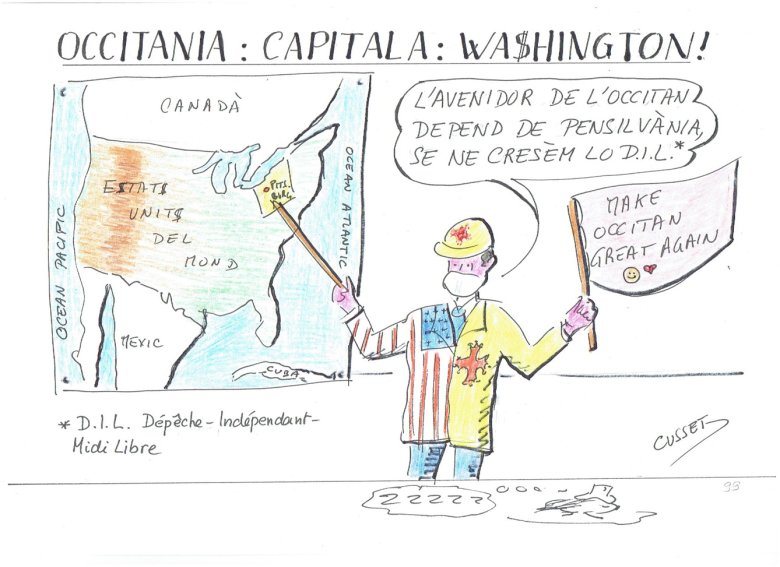 OCCITANIA : CAPITALA : WA$HINGTON !
CANADÀ
E$TAT$
UNIT$
DEL
MOND
PITS.
BURG.
OCEAN PACIFIC
OCEAN ATLANTIC
MEXIC
CUBA
L'AVENIDOR DE L'OCCITAN
DEPEND DE PENSILVÀNIA,
SE NE CRESÈM LO D.I.L.*
MAKE
OCCITAN
GREAT AGAIN
* D.I.L. Dépêche-Indépendant-
Midi Libre
CUSSET
ZZZZZ
99